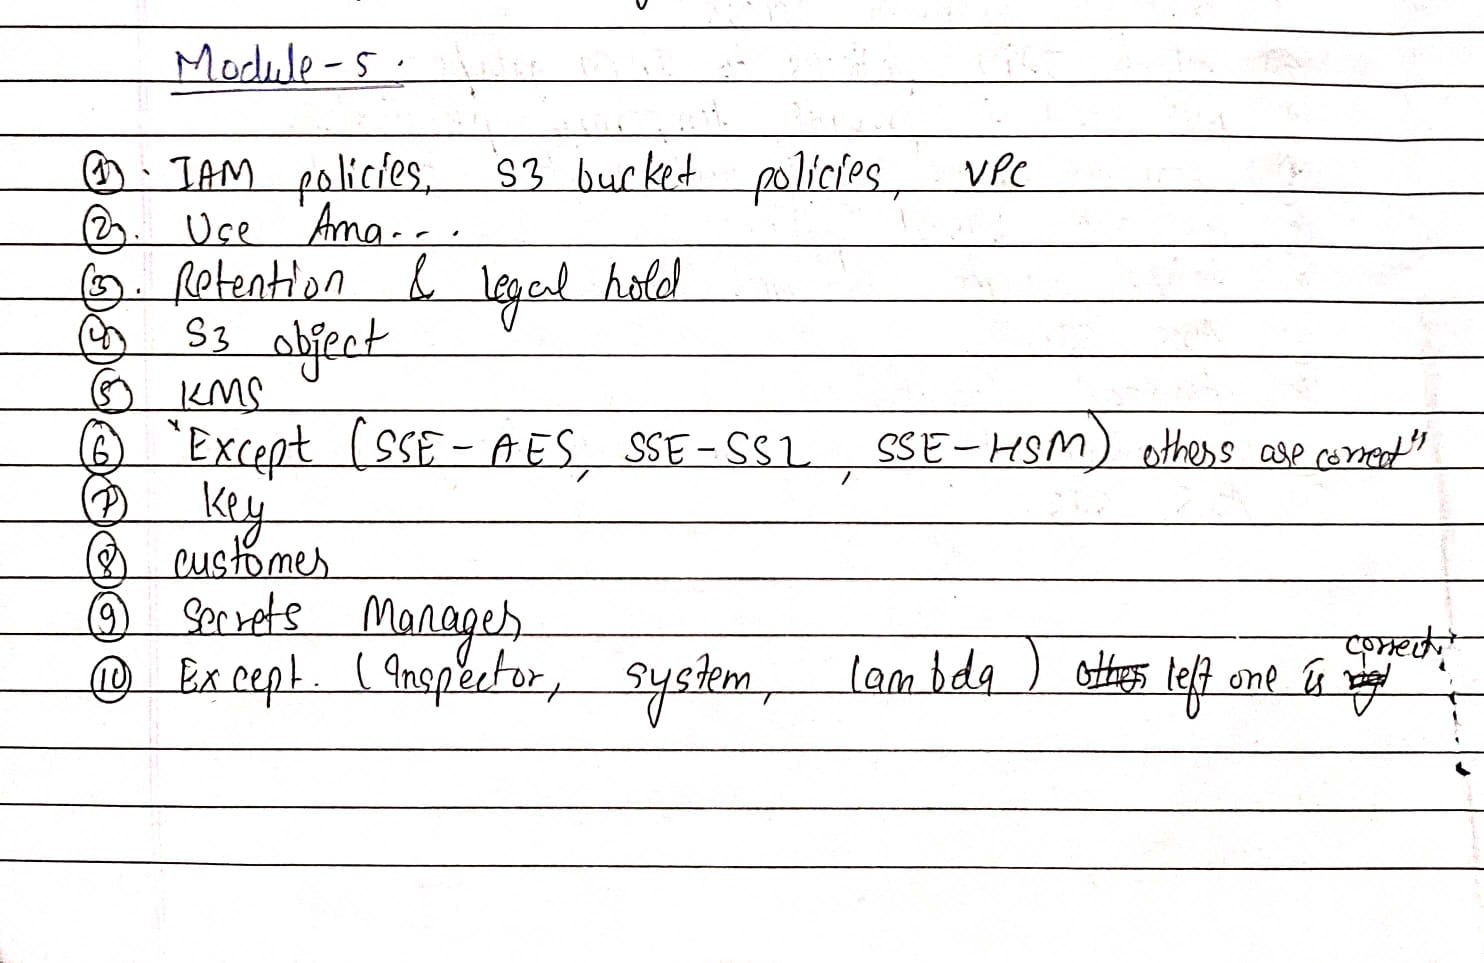 Module-5.
(1). IAM policies, S3 bucket policies, VPC
(2). Use Ama...
(3). Retention & legal hold
(4) S3 object
(5) KMS
(6) "Except (SSE-AES, SSE-SSL, SSE-HSM) others are correct"
(7) Key
(8) customer
(9) Secrets Manager
(10) Except. (Inspector, system, lambda) left one is correct.